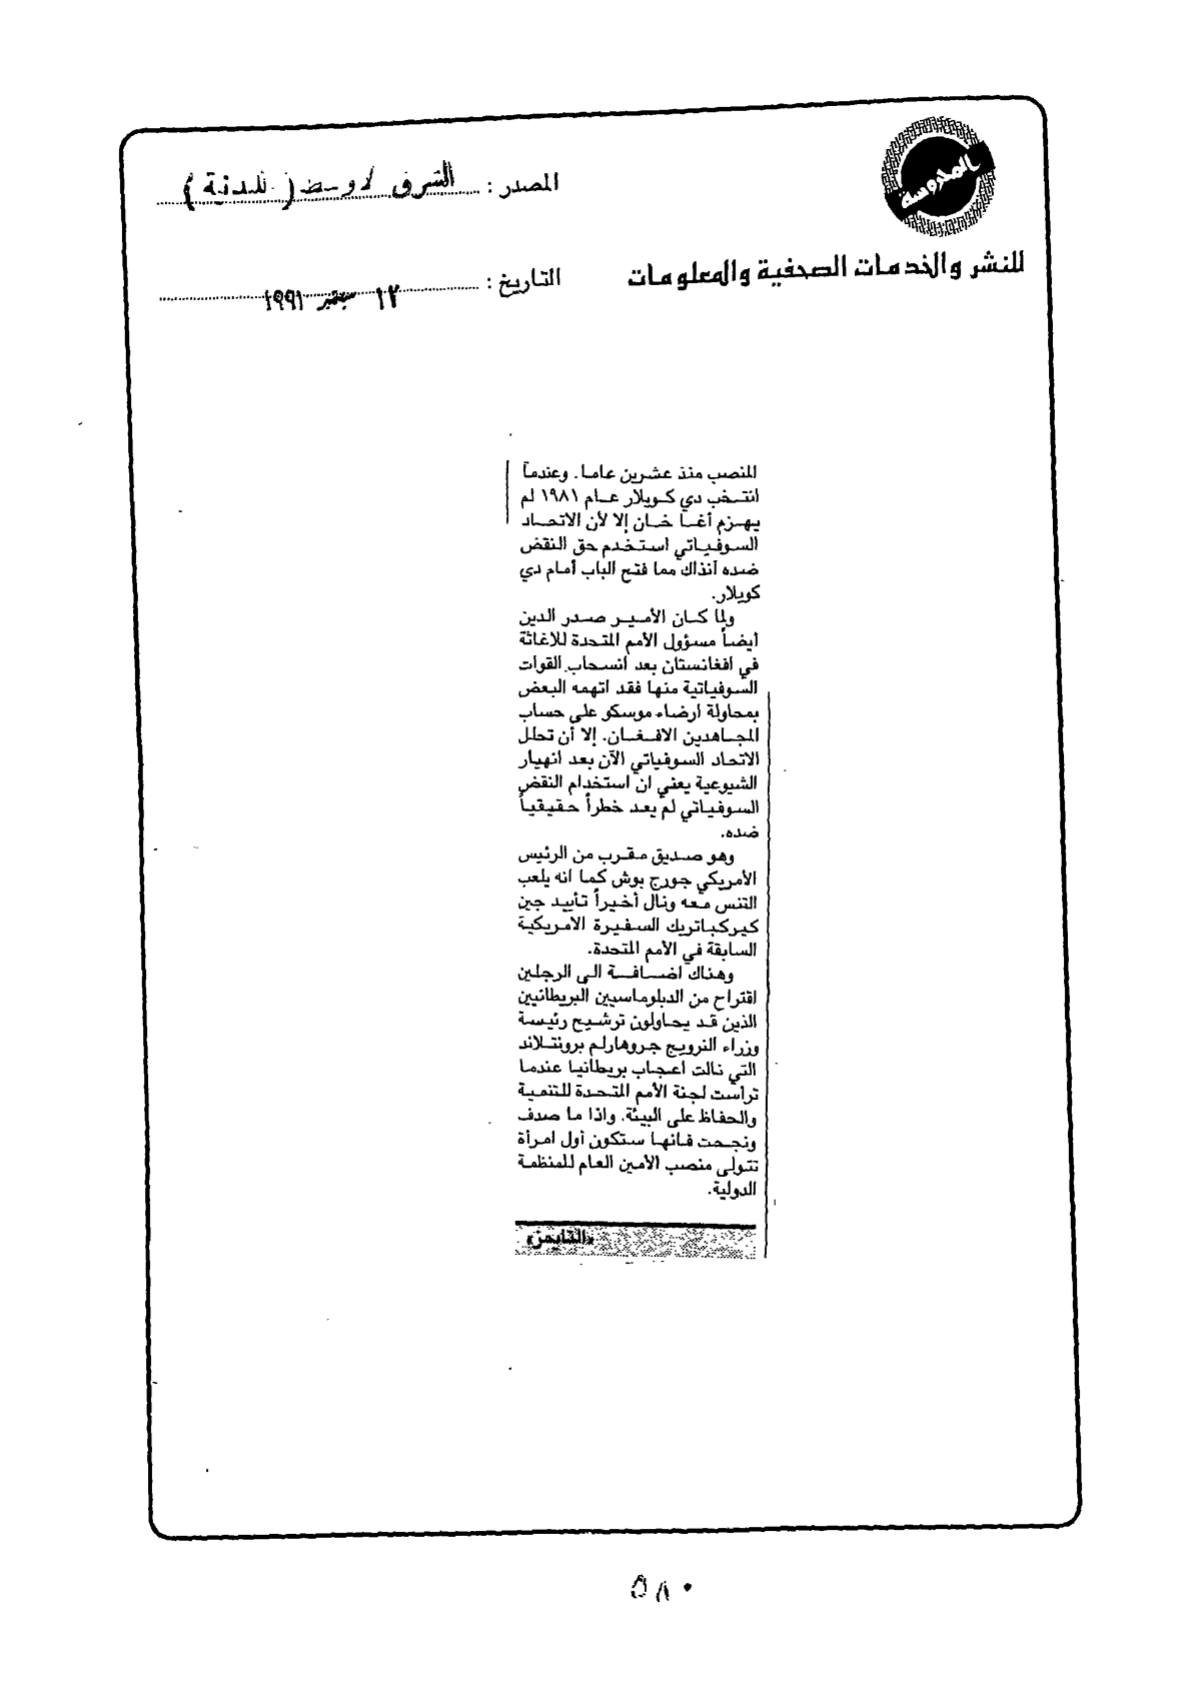 المدوسة
للنشر والخدمات الصحفية والمعلومات
المصدر : الشرق الاوسط (اللندنية)
التاريخ : ١٢ سبتمبر ١٩٩١
المنصب منذ عشرين عاما. وعندما
انتخب دي كويلار عام ١٩٨١ لم
يهزم أغا خان إلا لأن الاتحاد
السوفياتي استخدم حق النقض
ضده آنذاك مما فتح الباب أمام دي
كويلار.
ولما كان الأمير صدر الدين
أيضاً مسؤول الأمم المتحدة للاغاثة
في افغانستان بعد انسحاب القوات
السوفياتية منها فقد اتهمه البعض
بمحاولة ارضاء موسكو على حساب
المجاهدين الافغان. إلا أن تحلل
الاتحاد السوفياتي الآن بعد انهيار
الشيوعية يعني ان استخدام النقض
السوفياتي لم يعد خطراً حقيقياً
ضده.
وهو صديق مقرب من الرئيس
الأمريكي جورج بوش كما انه يلعب
التنس معه ونال أخيراً تأييد جين
كيركباتريك السفيرة الامريكية
السابقة في الأمم المتحدة.
وهناك اضافة الى الرجلين
اقتراح من الدبلوماسيين البريطانيين
الذين قد يحاولون ترشيح رئيسة
وزراء النرويج جروهارلم برونتلاند
التي نالت اعجاب بريطانيا عندما
ترأست لجنة الأمم المتحدة للتنمية
والحفاظ على البيئة. واذا ما صدف
ونجحت فانها ستكون أول امرأة
تتولى منصب الأمين العام للمنظمة
الدولية.
«التايمز»
٥٨٠